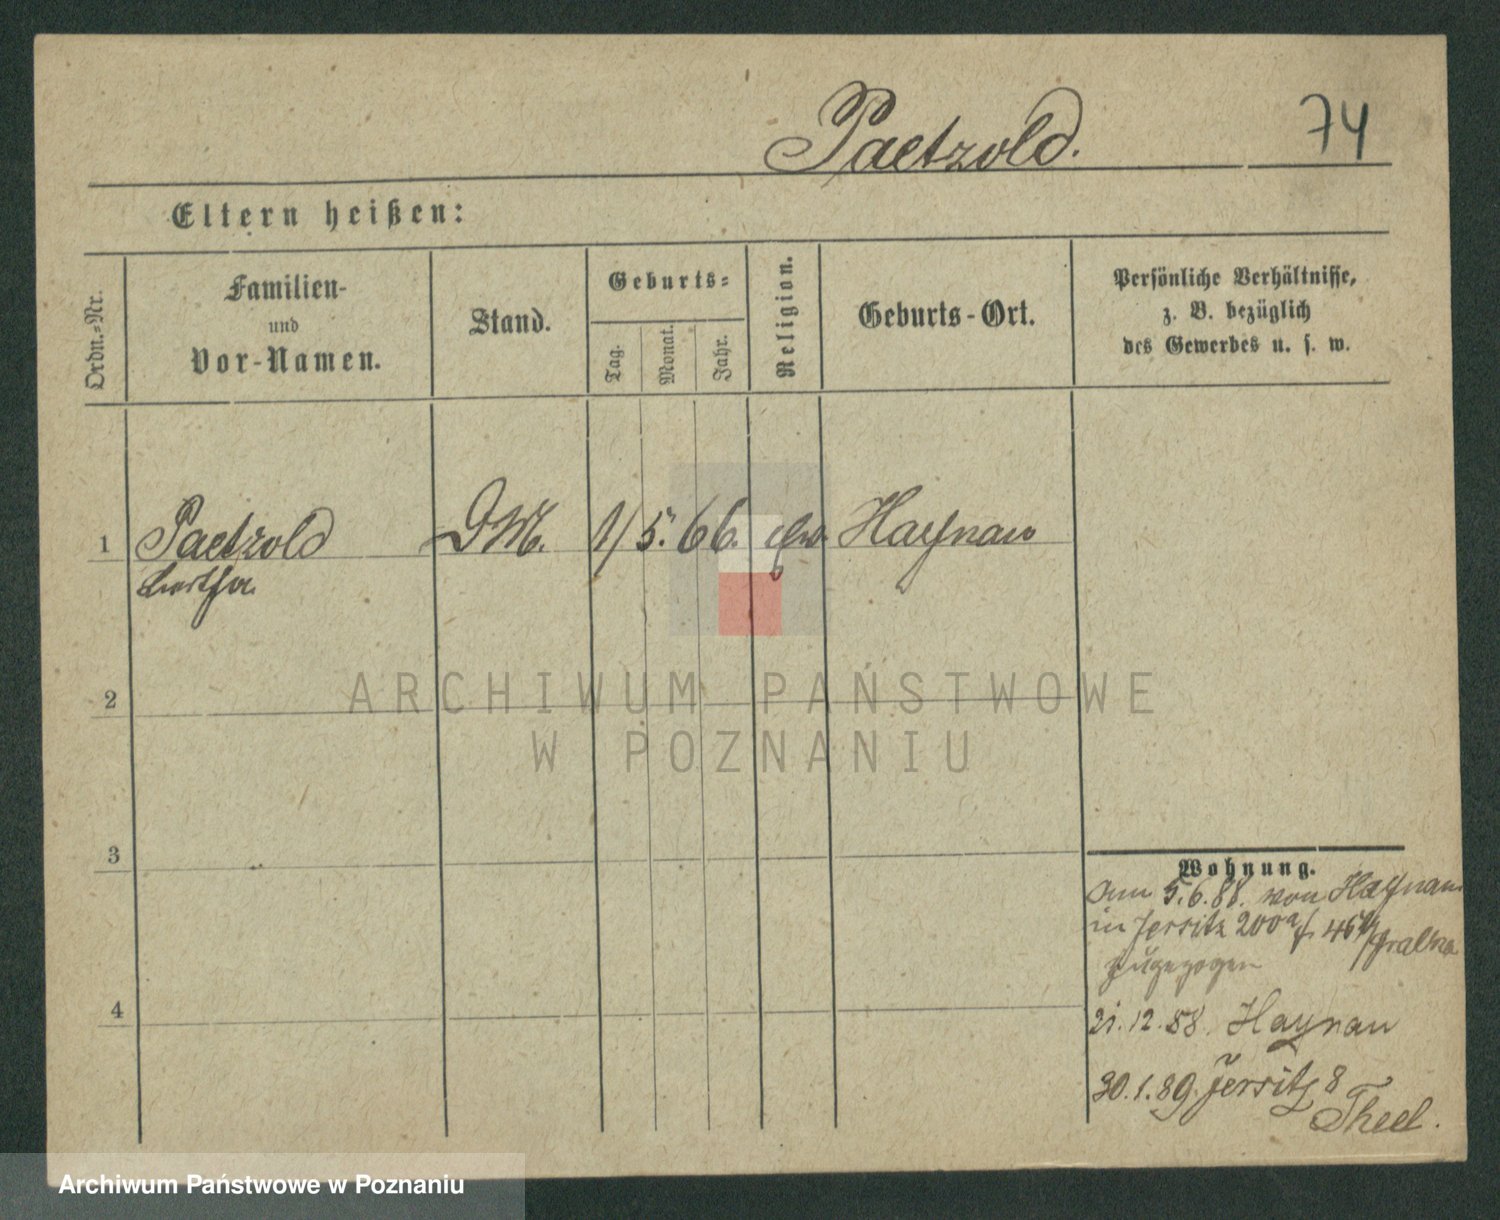 Paetzold. 74
Eltern heißen:
Ordn.=Nr.
Familien-
und
Vor-Namen.
Stand.
Geburts=
Tag.
Monat.
Jahr.
Religion.
Geburts-Ort.
Persönliche Verhältnisse,
z. B. bezüglich
des Gewerbes u. s. w.
1 Paetzold DM. 1/ 5. 66. Haynau
Bertha
ARCHIWUM PAŃSTWOWE
W POZNANIU
2
3
4
Wohnung.
Am 5.6.88. von Haynau
in Jersitz 200a
zugezogen
21.12.88. Haynau
30.1.89. Jersitz 8
Theel.
Archiwum Państwowe w Poznaniu